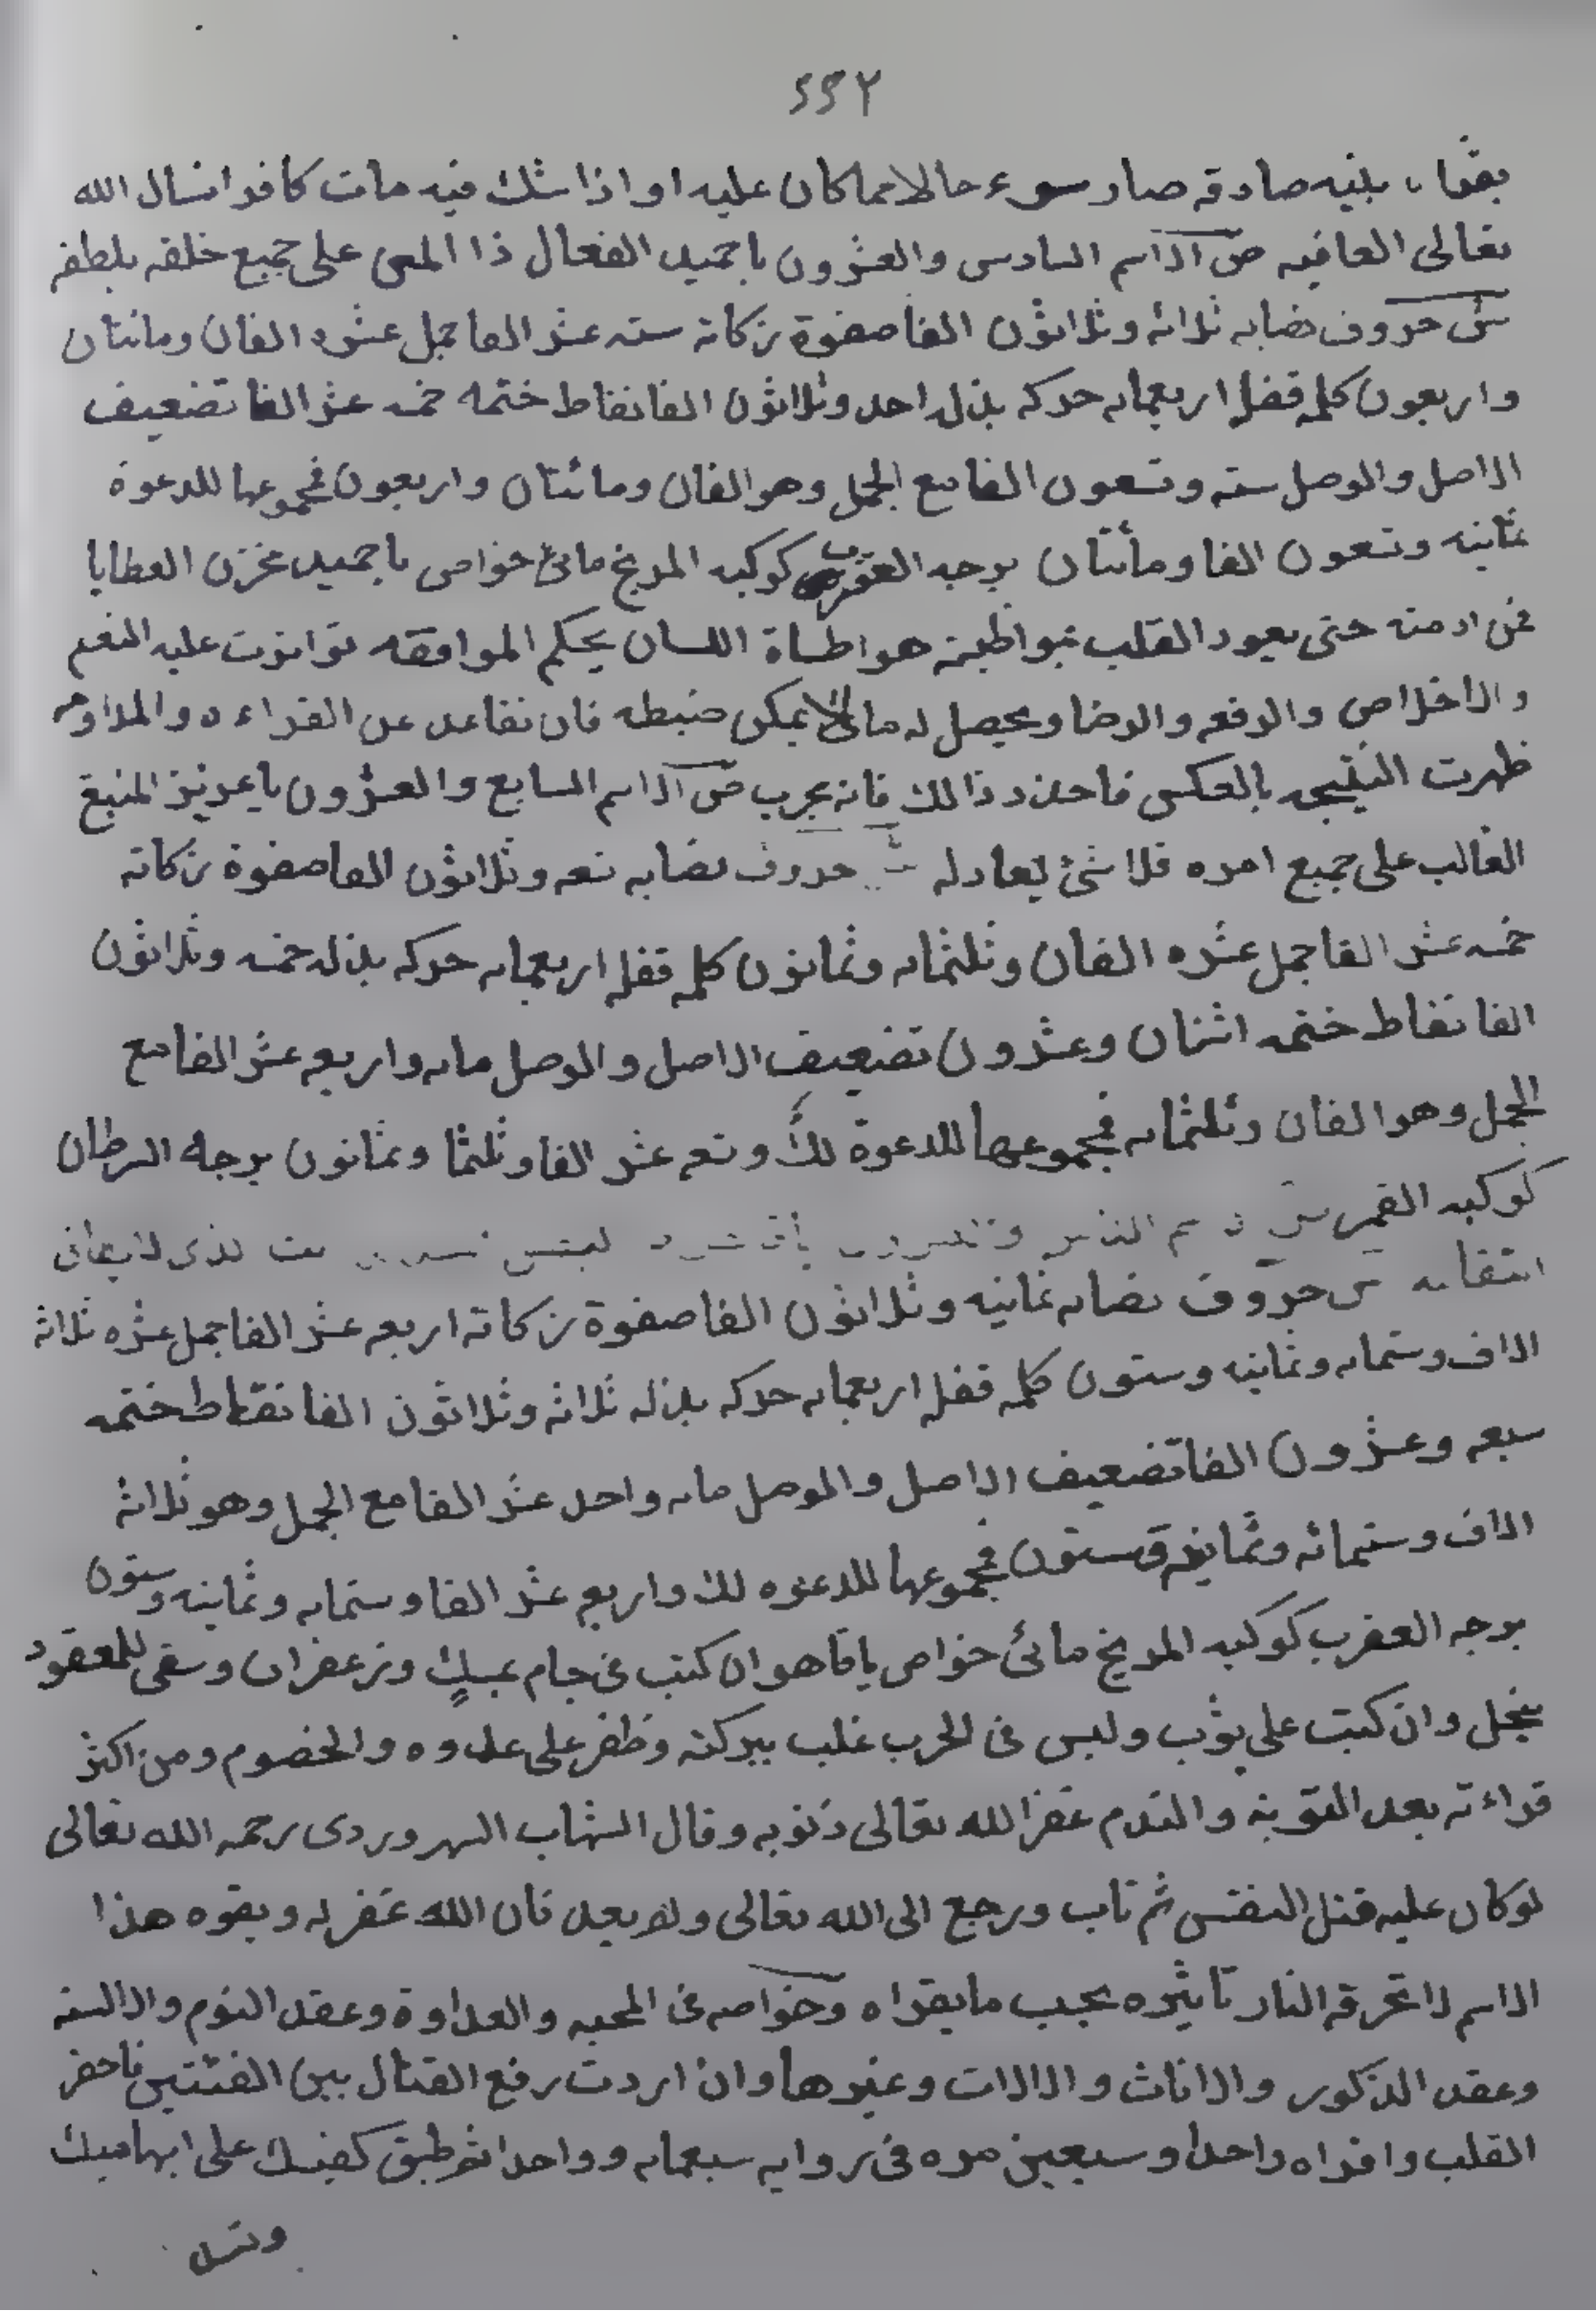 ٢٣٢
بنيه صادقه صار سوء حالا مما كان عليه او اذا شك فيه مات كافرا نسال الله
تعالى العافيه ص الاسم السادس والعشرون يا حميد الفعال ذا المن على جميع خلقه بلطفه
ش حروف نصابه ثلاثه وثلاثون الفا صفوة زكاته سته عشر الفا جمل عشره الفان ومائتان
واربعون كلمه قفله اربعمايه حركه بذله احد وثلاثون الفا نقاط ختمه خمسه عشر الفا تضعيف
الاصل والوصل سته وتسعون الفا مع الجمل وهو الفان ومائتان واربعون فمجموعها للدعوة
ثمانيه وتسعون الفا ومأتان برجه العقرب كوكبه المريخ مائى خواص يا حميد مخزن العطايا
فمن ادمنه حتى يعود القلب بمواظبته هو اطاة اللسان بحكم الموافقه تواترت عليه النعم
والاخلاص والرفعه والرضا ويحصل له ما لا يمكن ضبطه فان تقاعد عن القراءه والمداومه
ظهرت النتيجه بالعكس فاحذر ذالك فانه مجرب ص الاسم السابع والعشرون يا عزيز المنيع
الغالب على جميع امره فلا شئ يعادله ش حروف نصابه تسعه وثلاثون الفا صفوة زكاته
خمسه عشر الفا جمل عشره الفان وثلثمايه وثمانون كلمه قفله اربعمايه حركه بذله خمسه وثلاثون
الفا نقاط ختمه اثنان وعشرون تضعيف الاصل والوصل مايه واربعه عشر الفا مع
الجمل وهو الفان وثلثمايه فمجموعها للدعوة لك وتسعه عشر الفا وثلثما وثمانون برجه السرطان
كوكبه القمر الذى لا يطاق
انتقامه ش حروف نصابه ثمانيه وثلاثون الفا صفوة زكاته اربعه عشر الفا جمل عشره ثلاثه
الاف وستمايه وثمانيه وستون كلمه قفله اربعمايه حركه بذله ثلاثه وثلاثون الفا نقاط ختمه
سبعه وعشرون الفا تضعيف الاصل والوصل مايه واحد عشر الفا مع الجمل وهو ثلاثه
الاف وستمائه وثمانيه وستون فمجموعها للدعوه لك واربع عشر الفا وستمايه وثمانيه وستون
برجه العقرب كوكبه المريخ مائى خواص يا قاهر ان كتب فى جام بمسك وزعفران وسقى للمعقود
ينحل وان كتبت على ثوب ولبس فى الحرب غلب ببركته وظفر على عدوه والخصوم ومن اكثر
قراءته بعد التوبه والندم غفر الله تعالى ذنوبه وقال الشهاب السهروردى رحمه الله تعالى
لو كان عليه قتل النفس ثم تاب ورجع الى الله تعالى ولا يعد فان الله غفر له ويقوه هذا
الاسم لا تحرقه النار تاثيره بحسب ما يقراه وخواصه فى المحبه والعداوة وعقد النوم والالسنه
وعقد الذكور والاناث والالات وغيرها وان اردت رفع القتال بين الفئتين فاحفر
القلب واقراه واحدا وسبعين مره فى روايه سبعمايه وواحدا ثم طبق كفيك على ابهاميك